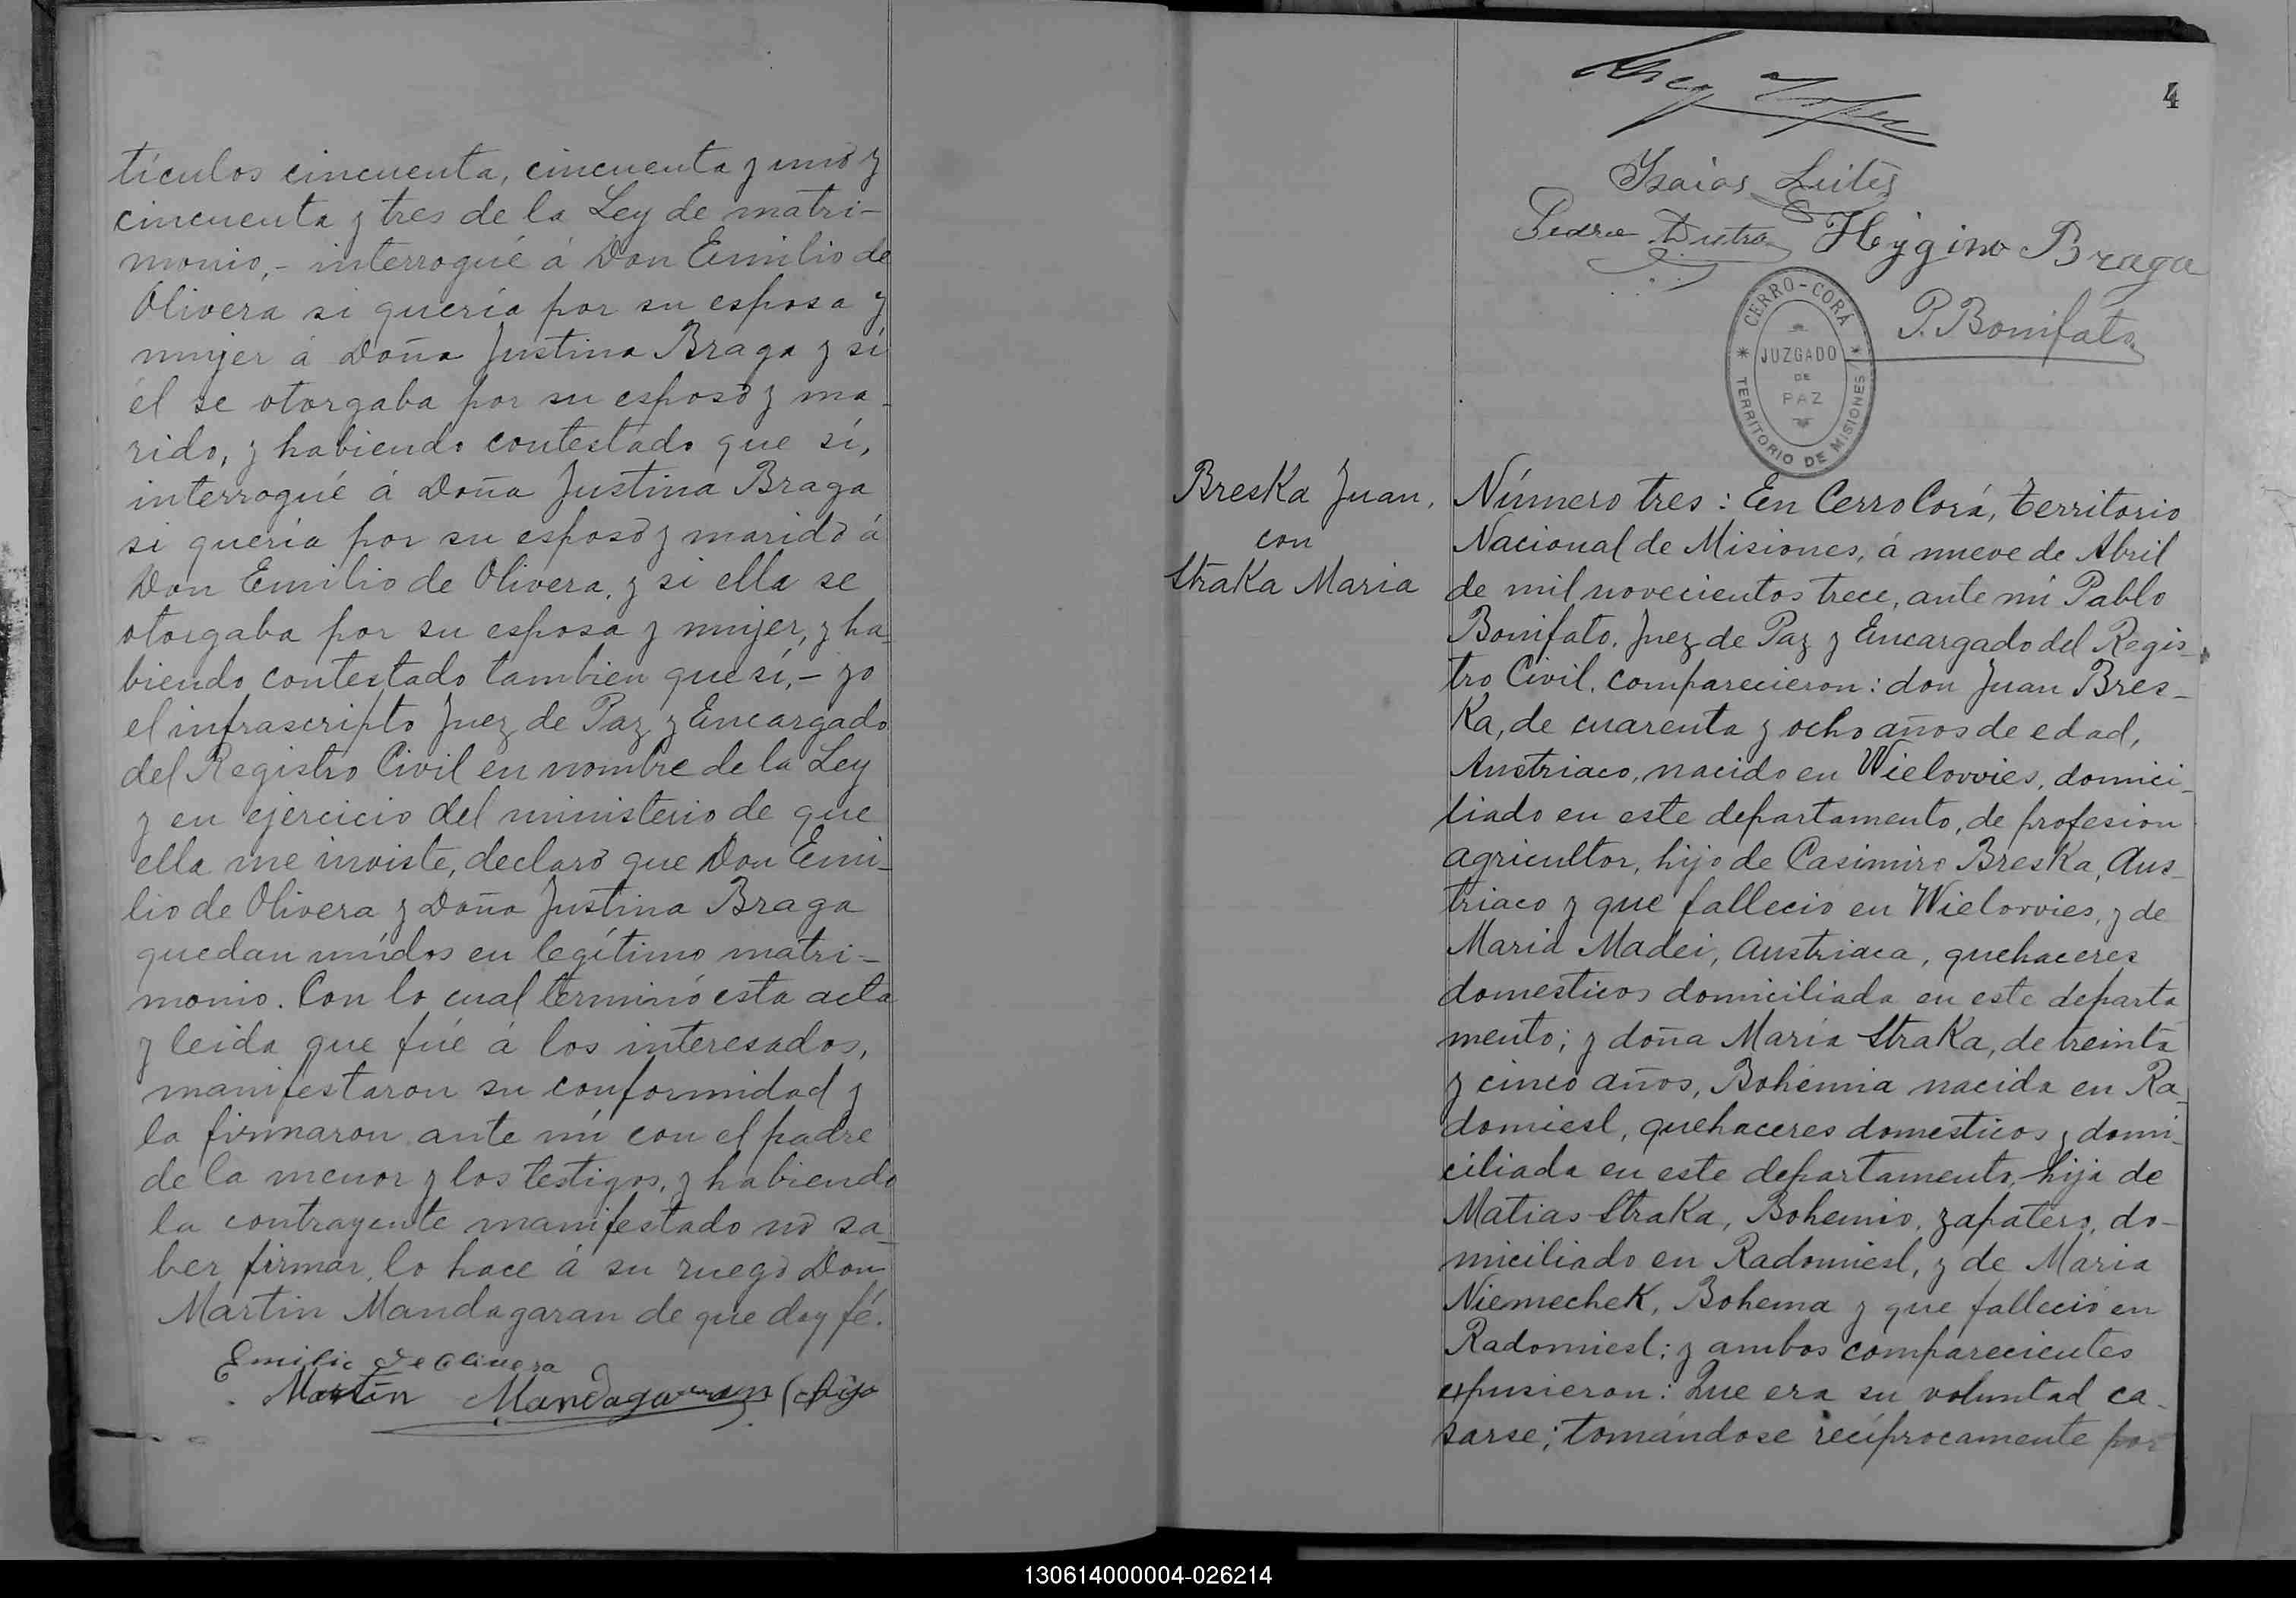 tículos cincuenta, cincuenta y uno y
cincuenta y tres de la Ley de matri-
monio,- interrogué á Don Emilio de
Olivera si quería por su esposa y
mujer á Doña Justina Braga y si
él se otorgaba por su esposo y ma-
rido, y habiendo contestado que sí,
interrogué á Doña Justina Braga
si quería por su esposo y marido á
Don Emilio de Olivera, y si ella se
otorgaba por su esposa y mujer, y ha-
biendo contestado tambien que sí,- yo
el infrascripto Juez de Paz y Encargado
del Registro Civil en nombre de la Ley
y en ejercicio del ministerio de que
ella me inviste, declaro que Don Emi-
lio de Olivera y Doña Justina Braga
quedan unidos en legítimo matri-
monio. Con lo cual terminó esta acta
y leida que fué á los interesados,
manifestaron su conformidad y
la firmaron ante mí con el padre
de la menor y los testigos, y habiendo
la contrayente manifestado no sa-
ber firmar, lo hace á su ruego Don
Martin Mandagaran de que doy fé.
Emilio de Olivera
Martin Mandagaran (hijo
4
Isaias Leites
Pedro Dutra Hygino Braga
P. Bonifato
CERRO-CORÁ
JUZGADO
DE
PAZ
TERRITORIO DE MISIONES
Breska Juan,
con
Straka Maria
Número tres: En Cerro Corá, territorio
Nacional de Misiones, á nueve de Abril
de mil novecientos trece, ante mí Pablo
Bonifato, Juez de Paz y Encargado del Regis-
tro Civil, comparecieron: don Juan Bres-
ka, de cuarenta y ocho años de edad,
Austriaco, nacido en Wielovvies, domici-
liado en este departamento, de profesion
agricultor, hijo de Casimiro Breska, Aus-
triaco y que fallecio en Wielovvies, y de
Maria Madei, Austriaca, quehaceres
domesticos domiciliada en este departa
mento; y doña María Straka, de treinta
y cinco años, Bohemia nacida en Ra-
domiesl, quehaceres domesticos y domi-
ciliada en este departamento, hija de
Matias Straka, Bohemio, zapatero, do-
miciliado en Radomiesl, y de Maria
Niemechek, Bohema y que falleció en
Radomiesl; y ambos comparecientes
expusieron: Que era su voluntad ca-
sarse; tomándose recíprocamente por
130614000004-026214